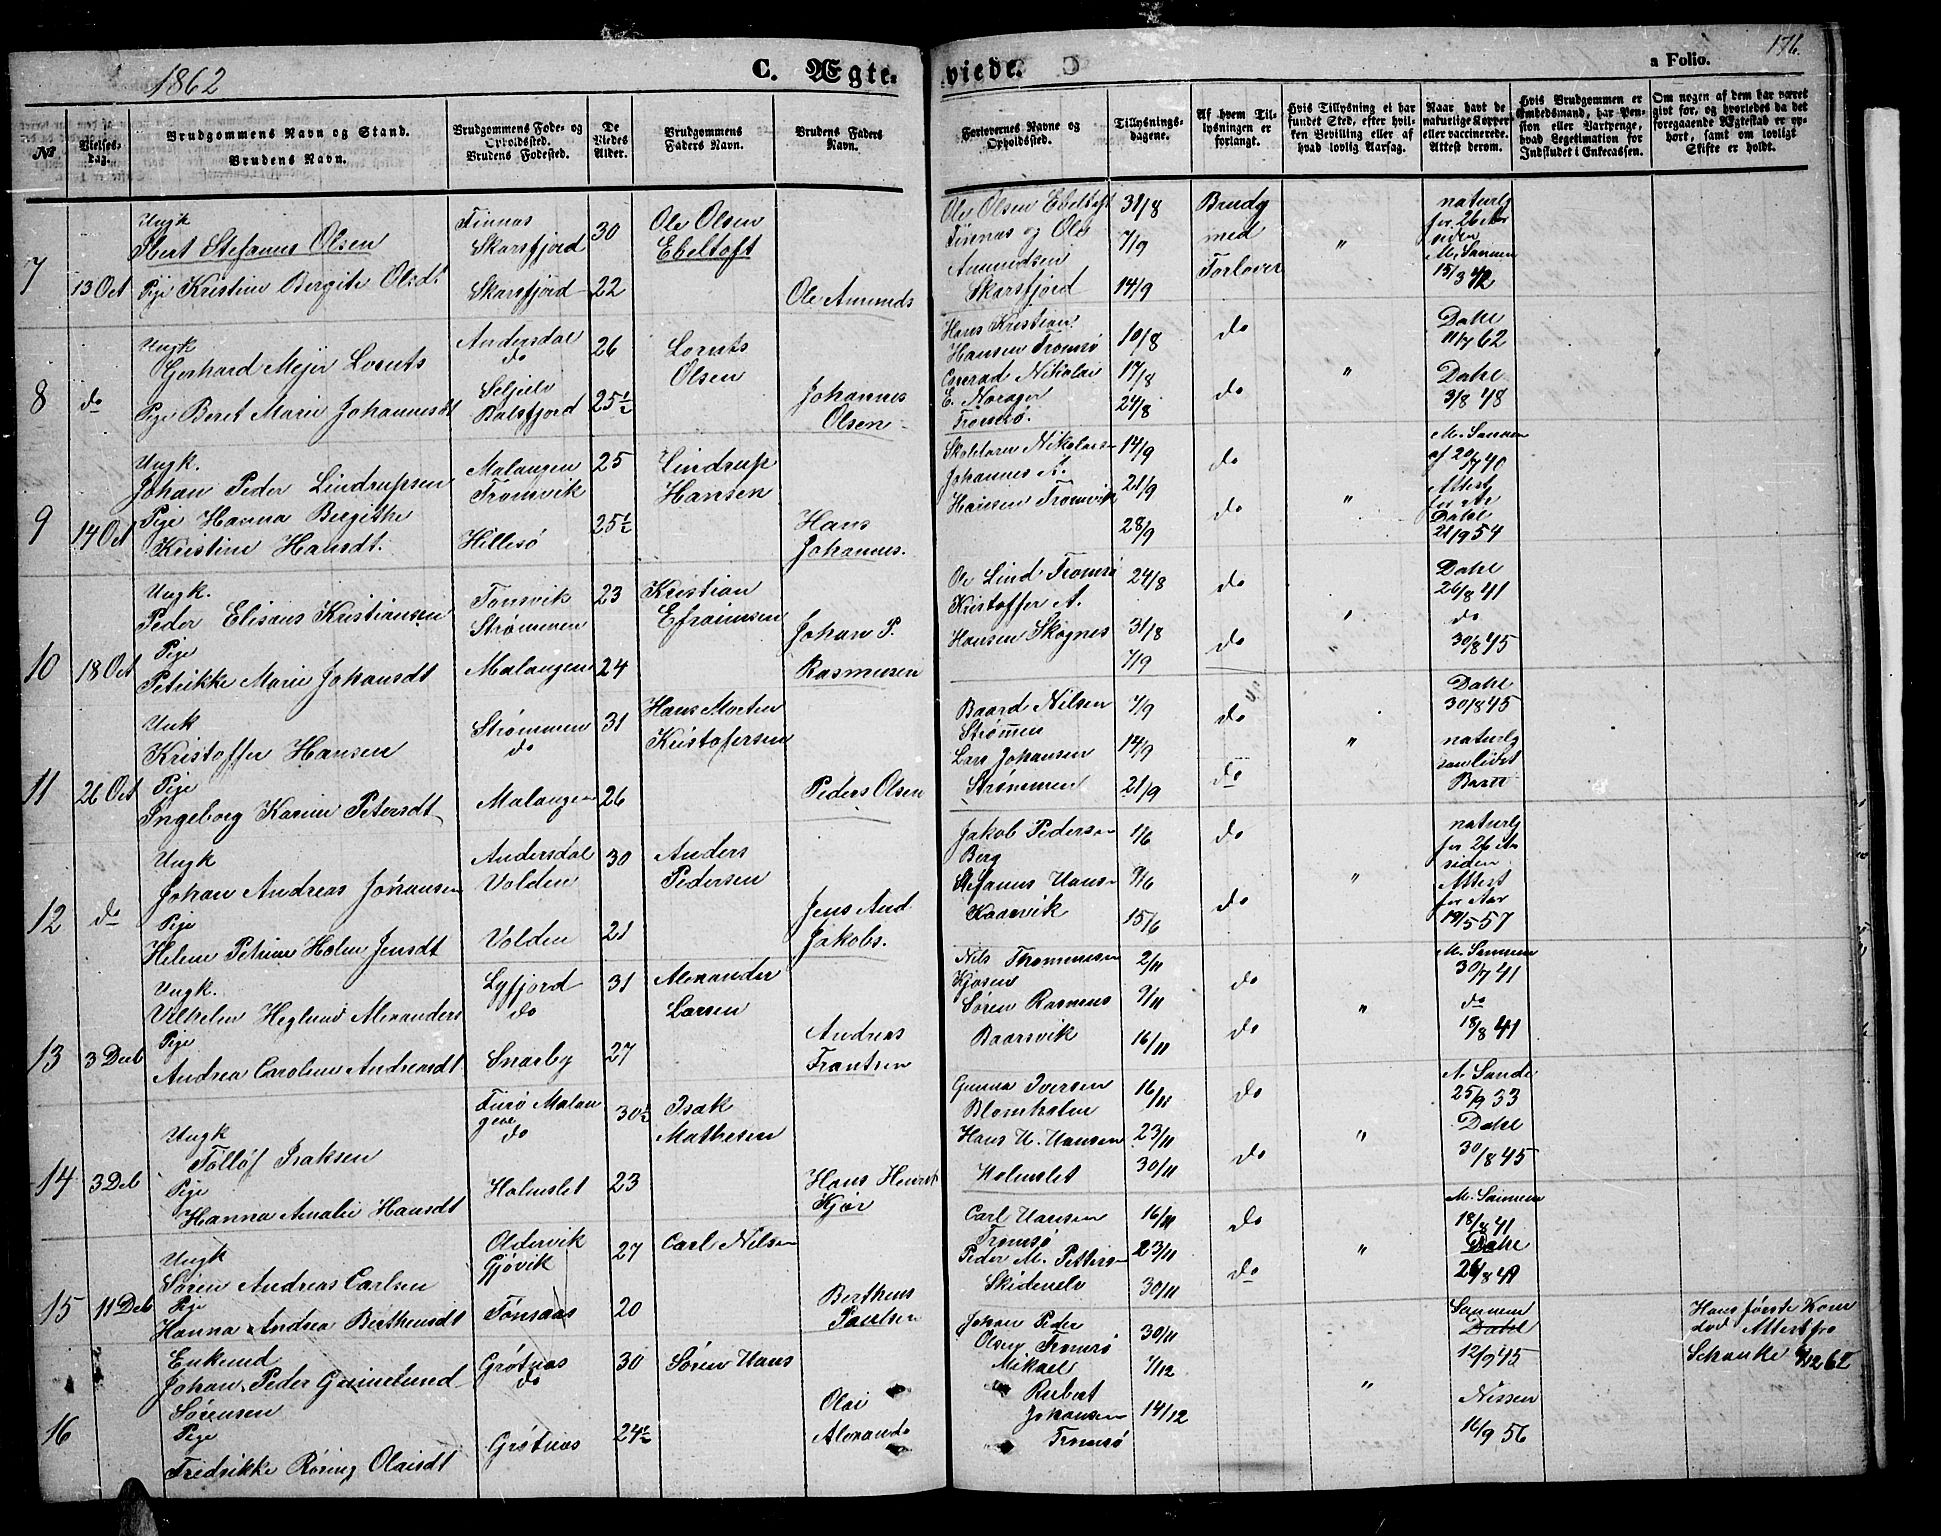 1862
C. Ægteviede.
a Folio. 176.
No.
Vielses-dag.
Brudgommens Navn og Stand.
Brudens Navn.
Brudgommens Føde- og Opholdssted.
Brudens Fødested.
De Viedes Alder.
Brudgommens Faders Navn.
Brudens Faders Navn.
Forlovernes Navne og Opholdssted.
Tillysnings-dagene.
Af hvem Tillysningen er forlangt.
Hvis Tillysning ei har fundet Sted, efter hvilken Bevilling eller af hvad lovlig Aarsag.
Naar havt de naturlige Kopper eller vaccinerede. Attest derom.
Hvis Brudgommen er Embedsmand, har Pension eller Vartpenge, hvad Legitimation for Indskudet i Enkecassen.
Om nogen af dem har været givt før, og hvorledes da det foregaaende Ægteskab er ophørt, samt om lovligt Skifte er holdt.
7 13 Oct
Ungk
Stefanus Olsen
Finnæs
Skarsfjord
30
Ole Olsen
Ebeltoft
Pige Kristine Bergite Olsdt
Skarsfjord
22
Ole Amunds
Ole Olsen Ebeltoft
Finnæs og Ole
Amundsen
Skarsfjord
31/8
7/9
14/9
Brudg
med
Forlover
"
naturlg
for 26 Aar
siden
M. Sannem
15/3 42
8 do
Ungk
Gerhard Mejer Lornts
Andersdal
do
26
Lornts
Olsen
Pige Beret Marie Johannesdt
Seljelv
Balsfjord
25½
Johannes
Olsen
Hans Kristian
Hansen Tromsø
Conrad Nikolai
E. Norager
Tromsø.
10/8
17/8
24/8
do
do
"
Dahl
11/7 62
Dahl
3/8 48
9 14 Oct
Ungk.
Johan Peder Lindrupsen
Malangen
Tromvik
25
Lindrup
Hansen
Pige Hanna Bergitte
Kristine Hansdt.
Hillesø
25½
Hans
Johannes.
Nikolais
Johannes A.
Hansen Tromvik
14/9
21/9
28/9
do
do
"
M. Sannem
af 20/7 40
Attest
for Ar
Dahl
21/9 54
10 18 Oct
Ungk.
Peder Elisæus Kristiansen
Tonsvik
Strømmen
23
Kristian
Efraimsen
Pige
Petrikke Marie Johansdt
Malangen
24
Johan P.
Rasmusen
Ole Lind Tromsø
Kristoffer A.
Hansen Skognes
24/8
31/8
7/9
do
do
"
Dahl
26/8 41
do
30/8 45
11 26 Oct
Unk
Kristoffer Hansen
Strømmen
do
31
Hans Morten
Kristofersen
Pige
Ingeborg Karine Petersdt
Malangen
26
Peders Olsen
Baard Nilsen
Strømmen
Lars Johansen
Strømmen
7/9
14/9
21/9
do
do
"
Dahl
30/8 45
naturlg
12 do
Ungk
Johan Andreas Johansen
Andersdal
Volden
30
Anders
Pedersen
Pige
Helene Petrine Holm Jensdt
Volden
21
Jens And.
Jakobs.
Jakob Pedersen
Berg
Stefanus Hans
Kaarvik
1/6
9/6
15/6
do
do
"
naturlg
for 26 Ar
siden
Attest
for Aar
19/5 57
13 3 Decb
Ungk.
Vilhelm Heglund Alexanders
Lyfjord
do
31
Alexander
Larsen
Pige
Andrea Caroline Andreasdt
Snarby
27
Andreas
Frantsen
Nils Thommesen
Kjosen
Søren Rasmus
Baarsvik
2/11
9/11
16/11
do
do
"
M. Sannem
30/7 41
do
18/8 41
14 3 Deb
Ungk
Tolløf Isaksen
Furø Malan
gen
do
30½
Isak
Mathesen
Pige
Hanna Amalie Hansdt
Holmslet
23
Hans Henrik
Kjør
Gunna Iversen
Blomholm
Hans H. Hansen
Holmslet
16/11
23/11
30/11
do
do
"
A. Sande
25/9 33
Dahl
30/8 45
15 11 Deb
Ungk
Søren Andreas Carlsen
Oldervik
Gjøvik
27
Carl Nilsen
Pige
Hanna Andrea Berthensdt
Tønsaas
20
Berthens
Paulsen
Carl Hansen
Tromsø
Peder M. Petters
Skidenelv
16/11
23/11
30/11
do
do
"
M. Sannem
18/8 41
Dahl
26/8 49
16
Enkemd
Johan Peder Grønlund
Sørensen
Grøtnæs
do
30
Søren Hans
Pige
Fredrikke Røring Olaisdt
Grøtnæs
24½
Olai
Alexand
Johan Peder
Olsen Tromsø
Mikael
Rusbert
Johansen
Tromsø
30/11
7/12
14/12
"
Sannem
Dahl
12/9 45
Nissen
16/9 56
Hans første Kone
død Attest fra
Schanke 9/12 62